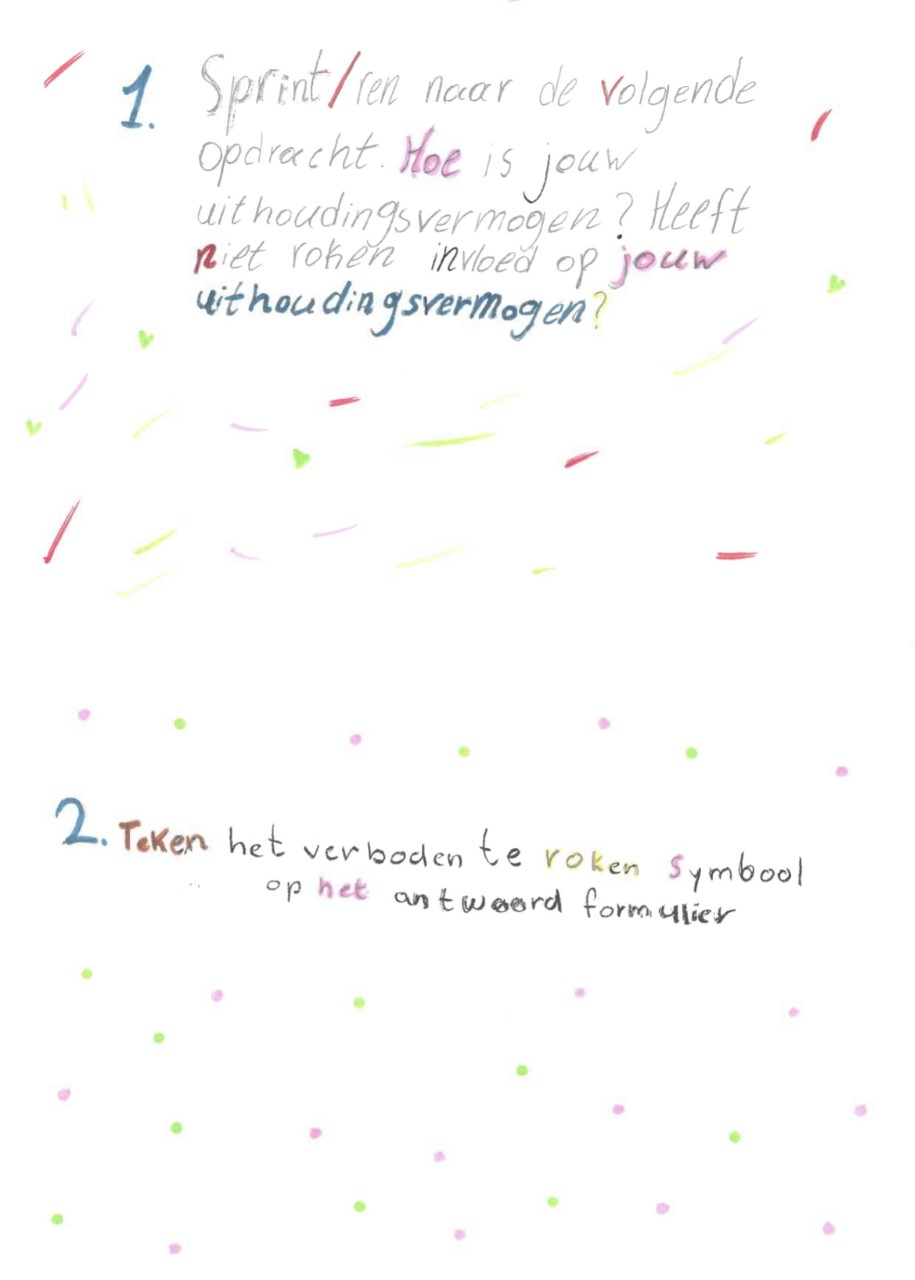 1. Sprint/ren naar de volgende
opdracht. Hoe is jouw
uithoudingsvermogen? Heeft
niet roken invloed op jouw
uithoudingsvermogen?
2. Teken het verboden te roken symbool
op het antwoord formulier